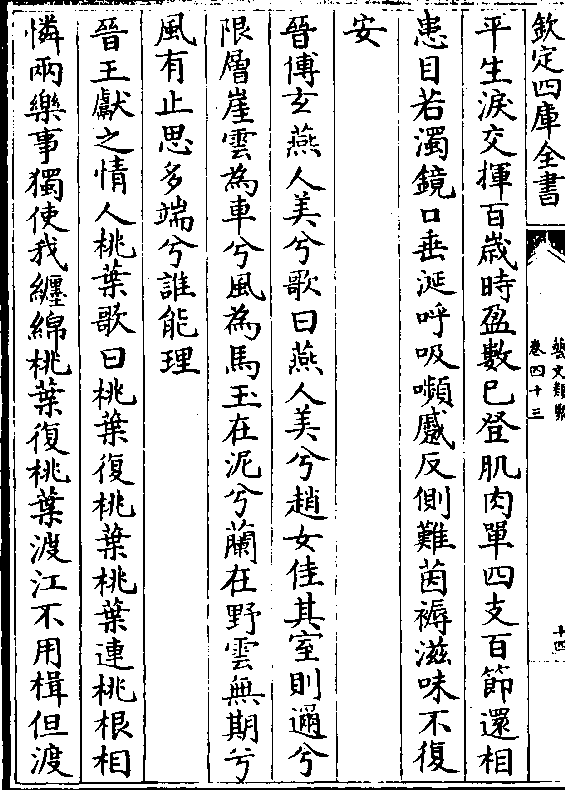 欽定四庫全書
藝文類聚
卷四十三
十四
平生淚交揮百歲時盈數已登肌肉單四支百節還相
患目若濁鏡口垂涎呼吸嚬蹙反側難茵褥滋味不復
安
晉傅玄燕人美兮歌曰燕人美兮趙女佳其室則邇兮
限層崖雲為車兮風為馬玉在泥兮蘭在野雲無期兮
風有止思多端兮誰能理
晉王獻之情人桃葉歌曰桃葉復桃葉桃葉連桃根相
憐兩樂事獨使我纏綿桃葉復桃葉渡江不用楫但渡